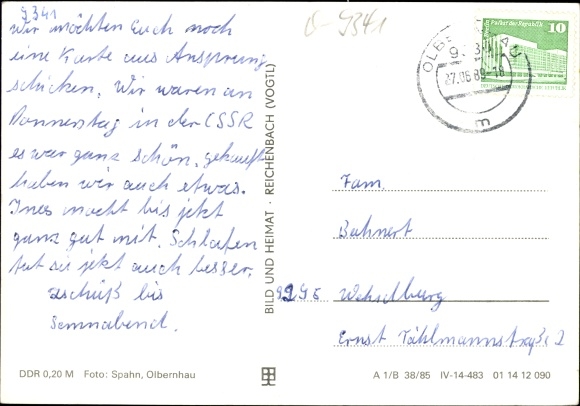 9341
Wir möchten Euch noch
eine Karte aus Ansprung
schicken. Wir waren am
Donnerstag in der CSSR
es war ganz schön, gekauft
haben wir auch etwas.
Ines macht bis jetzt
ganz gut mit. Schlafen
tut sie jetzt auch besser.
Tschüß bis
Sonnabend.
DDR 0,20 M Foto: Spahn, Olbernhau
BILD UND HEIMAT · REICHENBACH (VOGTL)
O-9341
OLBERNHAU
27.06.89-18
Palast der Republik
10
Fam
Bahnert
9296 Wechselburg
Ernst Tählmannstraße 2
A 1/B 38/85 IV-14-483 01 14 12 090